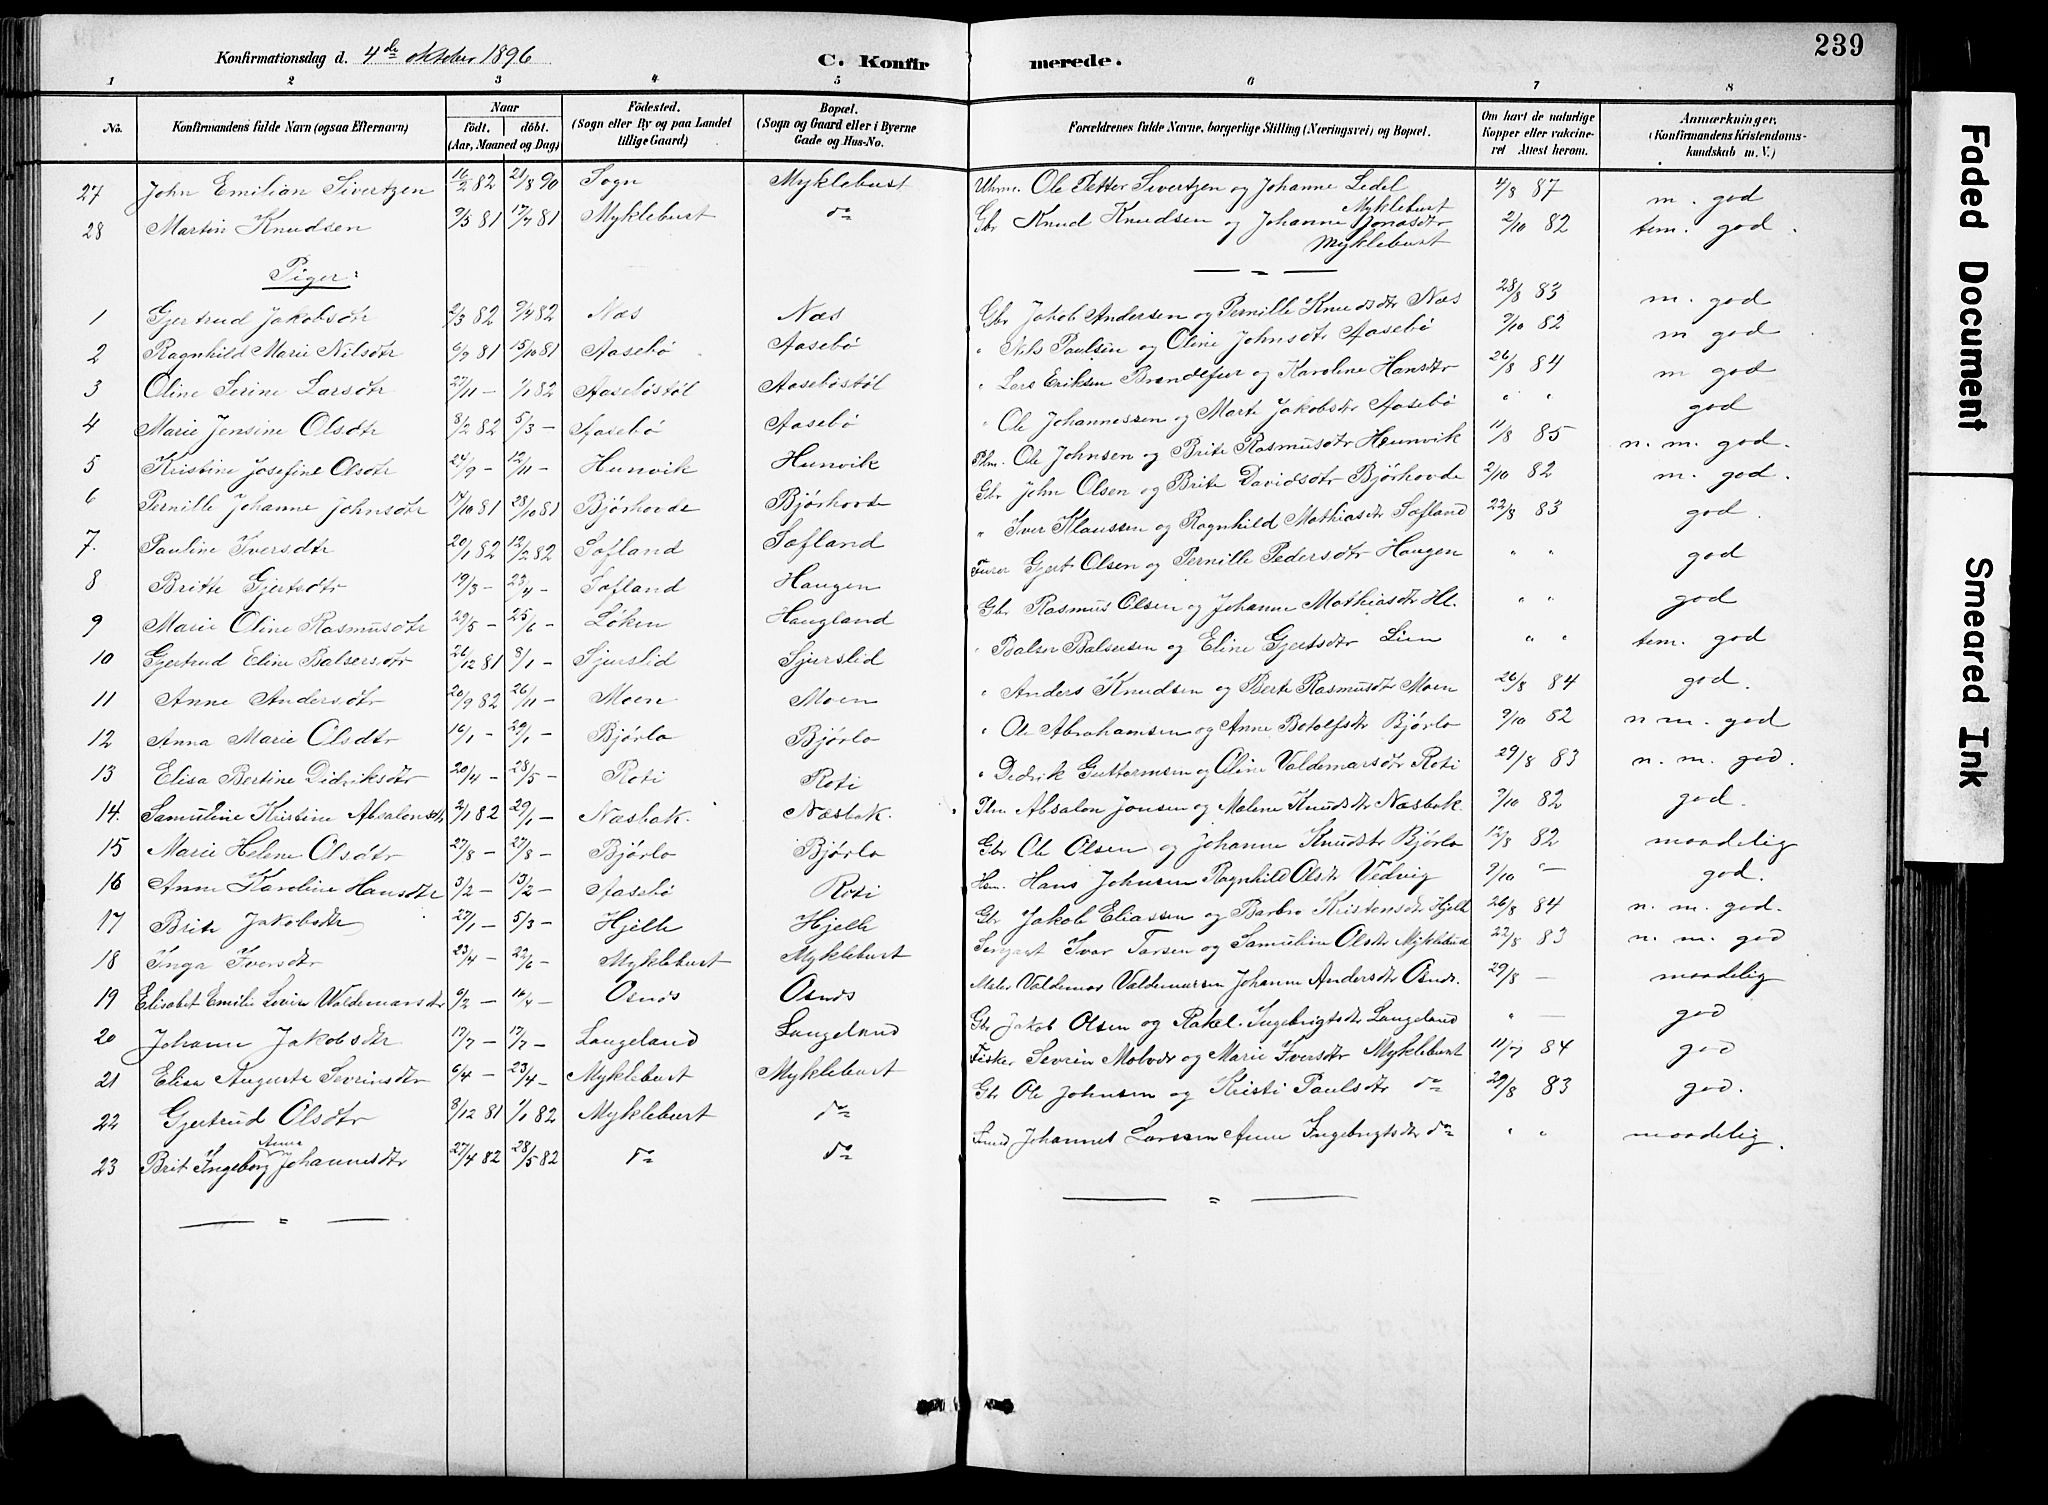 239
Konfirmationsdag d. 4de oktober 1896
C. Konfirmerede.
1 2 3 4 5 6 7 8
No.
Konfirmandens fulde Navn (ogsaa Efternavn)
Naar födt. döbt. (Aar, Maaned og Dag)
Födested. (Sogn eller By og paa Landet tillige Gaard)
Bopæl. (Sogn og Gaard eller i Byerne Gade og Hus-No.
Forældrenes fulde Navne, borgerlige Stilling (Næringsvei) og Bopæl.
Om havt de naturlige Kopper eller vakcineret Attest herom.
Anmærkninger, (Konfirmandens Kristendomskundskab m. V.)
27 John Emilian Sivertzen 16/2 82 21/8 90 Sogn Myklebust Uhrm. Ole Petter Sivertzen og Johanne Ledel Myklebust 4/8 87 m. god
28 Martin Knudsen 9/3 81 17/4 81 Myklebust do Gbr Knud Knudsen og Johanne Jonasdtr Myklebust 2/10 82 tem. god.
Piger:
1 Gjertrud Jakobsdtr 2/3 82 9/4 82 Næs Næs Gbr Jakob Andersen og Pernille Knudsdtr Næs 28/8 83 m. god
2 Ragnhild Marie Nilsdtr 6/9 81 15/10 81 Aasebö Aasebö " Nels Paulsen og Oline Johnsdtr Aasebö 9/10 82 m god
3 Oline Serine Larsdtr 27/11 - 1/1 82 Aaseböstöl Aaseböstöl " Lars Eriksen Brandefur og Karoline Hansdtr 26/8 84 m god
4 Marie Jensine Olsdtr 8/2 82 5/3 - Aasebö Aasebö " Ole Johannessen og Marte Jakobsdtr Aasebö " " god
5 Kristine Josefine Olsdtr 24/9 - 12/11 - Hunvik Hunvik Plm. Ole Johnsen og Brite Rasmusdtr Hunvik 11/8 85 n. m. god.
6 Pernille Johanne Johnsdtr 17/10 81 28/10 81 Bjørhovde Bjørhovde Gbr John Olsen og Brite Davidsdtr Bjørhovde 2/10 82 m. god.
7. Pauline Iversdtr 20/1 82 12/2 82 Sofland Sofland " Iver Klaussen og Ragnhild Mathiasdtr Sofland 22/8 83 god.
8 Britte Gjertsdtr 19/3 - 23/4 - Sofland Haugen Gjert Olsen og Pernille Pedersdtr Haugen " " god
9 Marie Oline Rasmusdtr 29/5 - 25/6 - Løken Haugland Gbr Rasmus Olsen og Johanne Mathiasdtr Hl. " " god
10 Gjertrud Eline Balsersdtr 26/12 81 8/1 - Sjurslid Sjurslid " Balser Balsersen og Eline Gjertsdtr Lien " " tem. god
11 Anne Andersdtr 20/9 82 26/11 - Moen Moen " Anders Knudsen og Berte Rasmusdtr Moen 26/8 84 god.
12 Anna Marie Olsdtr 16/1 - 29/1 - Bjørlo Bjørlo " Ole Abrahamsen og Anne Botolfsdtr Bjørlo 9/10 82 n m. god
13 Elisa Bertine Didriksdtr 20/4 - 28/5 - Roti Roti " Didrik Guttormsen og Oline Valdemarsdtr Roti 29/8 83 n. m. god.
14. Samuline Kristine Absalonsdtr 2/1 82 29/1 - Næsbak. Næsbak. Plm Absalon Jonsen og Malene Knudsdtr Næsbak. 9/10 82 god.
15 Marie Helene Olsdtr 27/8 - 27/8 - Bjørlo Bjørlo Gbr Ole Olsen og Johanne Knudsdtr Bjørlo 12/8 82 maadelig
16 Anne Karoline Hansdtr 3/2 - 13/2 - Aasebö Roti Hsm. Hans Johnsen Ragnhild Olsdtr Vedvig 9/10 " - god.
17 Brite Jakobsdtr 27/1 - 5/3 - Hjelle Hjelle Gbr Jakob Eliassen og Barbro Kristensdtr Hjelle 26/8 84 n. m. god.
18 Inga Iversdtr 23/4 - 22/6 - Myklebust Myklebust Serjant Ivar Tarsen og Samuline Olsdtr Myklebust 22/8 83 n. m. god
19 Elisabet Emilie Waldemarsdtr 6/2 - 16/4 - Osnæs Osnæs Maler Valdemar Valdemarsen Johanne Andersdtr Osnæs. 29/8 - maadelig
20 Johanne Jakobsdtr 17/7 - 17/7 - Langeland Langeland Gbr Jakob Olsen og Rakel Ingebrigtsdtr Langeland " - god
21 Elisa Augusta Sevrinsdtr 6/4 - 23/4 - Myklebust Myklebust Fisker Sevrin Molvær og Marie Iversdtr Myklebust 11/7 84 god
22 Gjertrud Olsdtr 8/12 81 1/1 82 Myklebust do Gbr Ole Johnsen og Kristi Paulsdtr do 29/8 83 god.
23 Brit Ingeborg Anna Johannesdtr 27/4 82 28/5 82 do do Smed Johannes Larssen Anne Ingebrigtsdtr do " " maadelig.
Faded Document
Smeared Ink